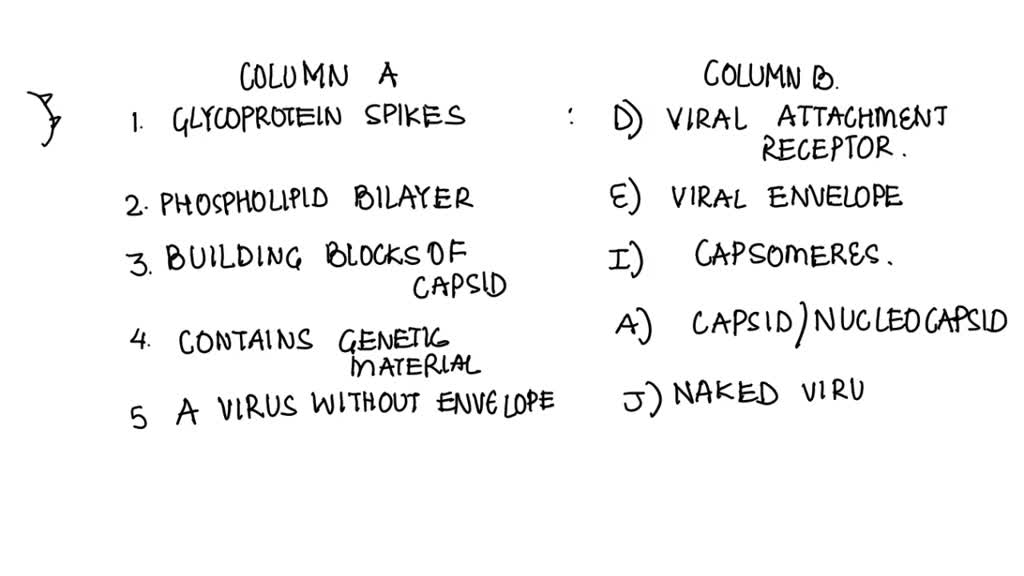 COLUMN A COLUMN B.
1. GLYCOPROTEIN SPIKES : D) VIRAL ATTACHMENT
RECEPTOR.
2. PHOSPHOLIPID BILAYER E) VIRAL ENVELOPE
3. BUILDING BLOCKS OF I) CAPSOMERES.
CAPSID
4. CONTAINS GENETIC A) CAPSID/NUCLEOCAPSID
MATERIAL
5 A VIRUS WITHOUT ENVELOPE J) NAKED VIRU